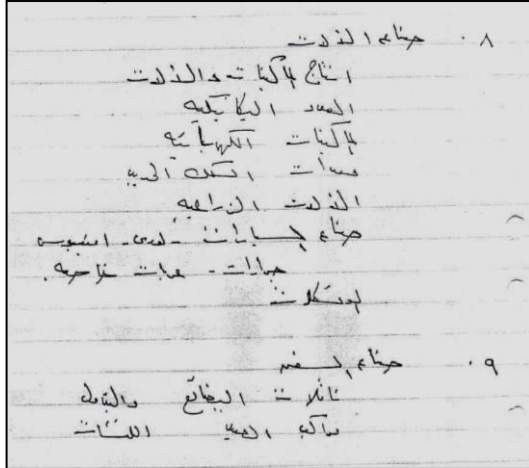 ٨. صناعة الآلات
انتاج الماكينات والآلات
العدد الميكانيكية
الماكينات الكهربائية
معدات السكك الحديد
الآلات الزراعية
صناعة السيارات - لوري - اتوبيس
جرارات - عربات
الموتسكلات
٩. صناعة السفن
ناقلات البضائع والبترول
مراكب الصيد اللنشات